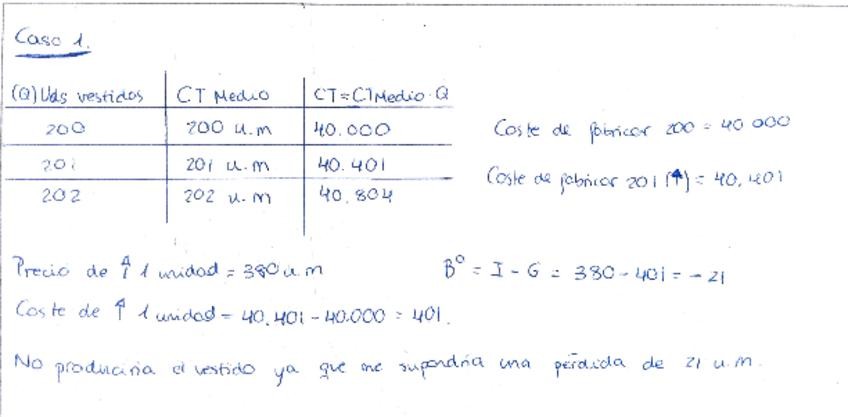 Caso 1.
(Q) Uds vestidos CT Medio CT = CTMedio · Q
200 200 u.m 40.000
201 201 u.m 40.401
202 202 u.m 40.804
Coste de fabricar 200 = 40 000
Coste de fabricar 201 (↑) = 40.401
Precio de ↑ 1 unidad = 380 u.m
Bº = I - G = 380 - 401 = - 21
Coste de ↑ 1 unidad = 40.401 - 40.000 = 401.
No produciria el vestido ya que me supondría una pérdida de 21 u.m.